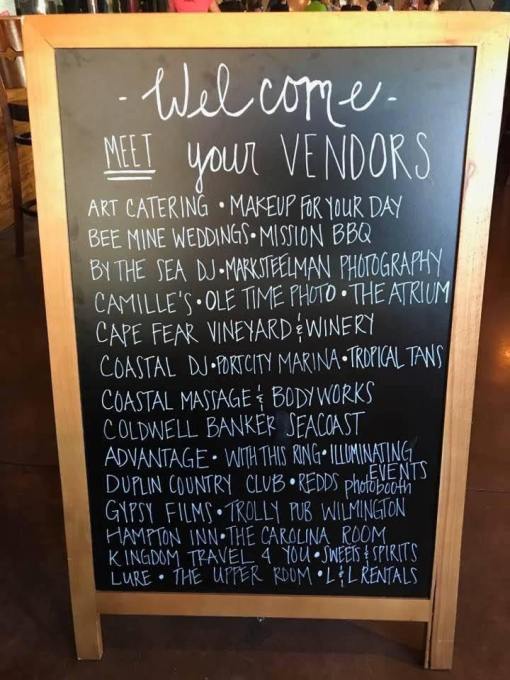 - Welcome -
MEET your VENDORS
ART CATERING • MAKEUP FOR YOUR DAY
BEE MINE WEDDINGS • MISSION BBQ
BY THE SEA DJ • MARK STEELMAN PHOTOGRAPHY
CAMILLE'S • OLE TIME PHOTO • THE ATRIUM
CAPE FEAR VINEYARD & WINERY
COASTAL DJ • PORT CITY MARINA • TROPICAL TANS
COASTAL MASSAGE & BODYWORKS
COLDWELL BANKER SEACOAST
ADVANTAGE • WITH THIS RING • ILLUMINATING
EVENTS
DUPLIN COUNTRY CLUB • REDDS photobooth
GYPSY FILMS • TROLLY PUB WILMINGTON
HAMPTON INN • THE CAROLINA ROOM
KINGDOM TRAVEL 4 YOU • SWEETS & SPIRITS
LURE • THE UPPER ROOM • L & L RENTALS